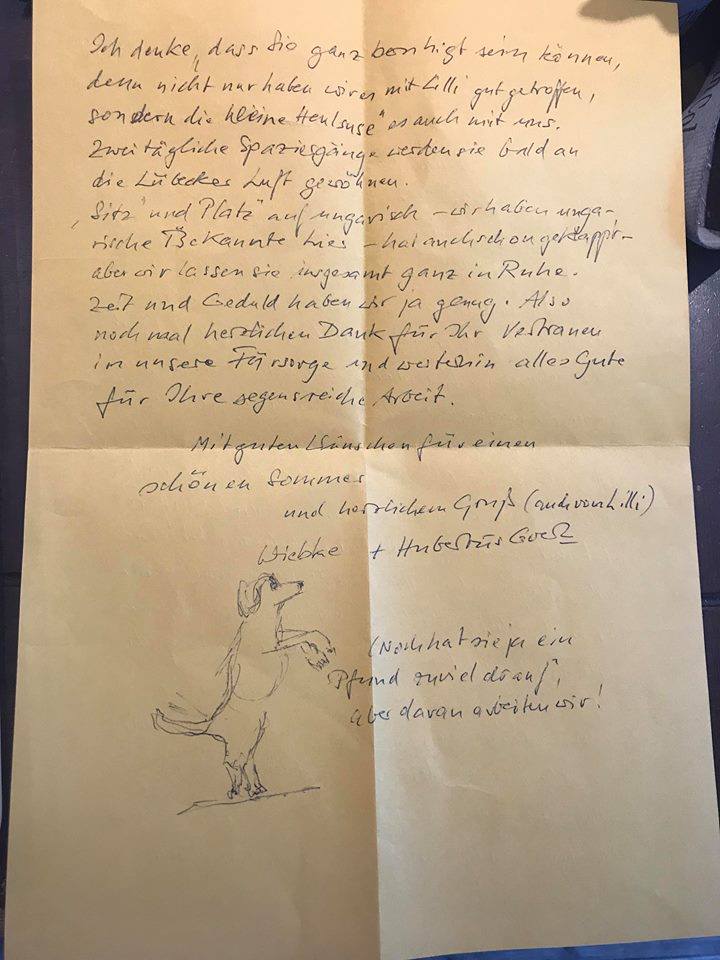 Ich denke, dass Sie ganz beruhigt sein können,
denn nicht nur haben wir es mit Lilli gut getroffen,
sondern die "kleine Heulsuse" es auch mit uns.
Zwei tägliche Spaziergänge werden sie bald an
die Lübecker Luft gewöhnen.
„Sitz" und Platz" auf ungarisch – wir haben unga-
rische Bekannte hier – hat auch schon geklappt –
aber wir lassen sie insgesamt ganz in Ruhe.
Zeit und Geduld haben wir ja genug. Also
noch mal herzlichen Dank für Ihr Vertrauen
in unsere Fürsorge und weiterhin alles Gute
für Ihre segensreiche Arbeit.
Mit guten Wünschen für einen
schönen Sommer
und herzlichem Gruß (auch von Lilli)
Wiebke + Hubertus
(Noch hat sie ja ein
Pfund zuviel drauf",
aber daran arbeiten wir!